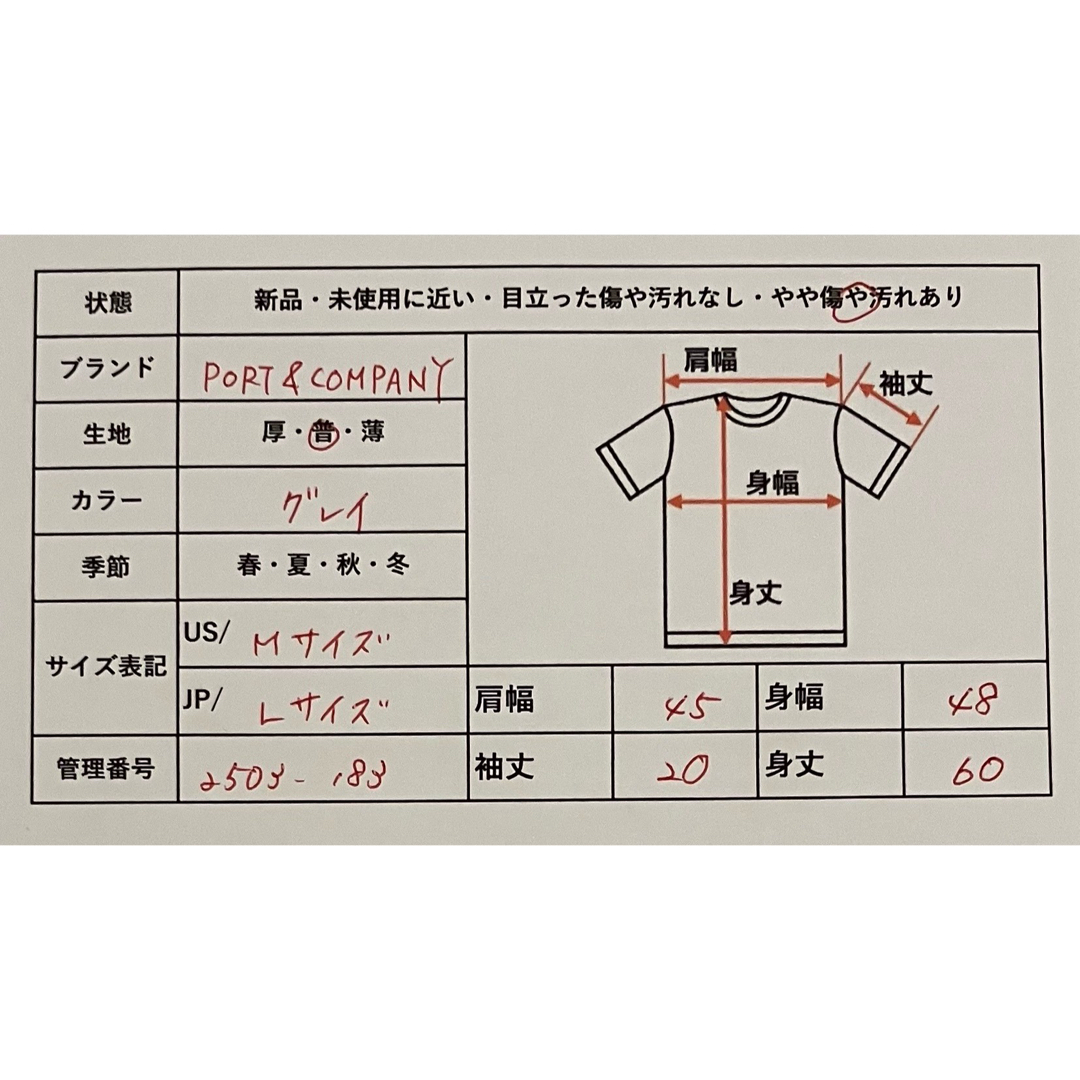 状態 新品・未使用に近い・目立った傷や汚れなし・やや傷や汚れあり
ブランド PORT & COMPANY
生地 厚・普・薄
カラー グレイ
季節 春・夏・秋・冬
サイズ表記 US/ Mサイズ
JP/ Lサイズ
管理番号 2503-183
肩幅
袖丈
身幅
身丈
肩幅 45 身幅 48
袖丈 20 身丈 60